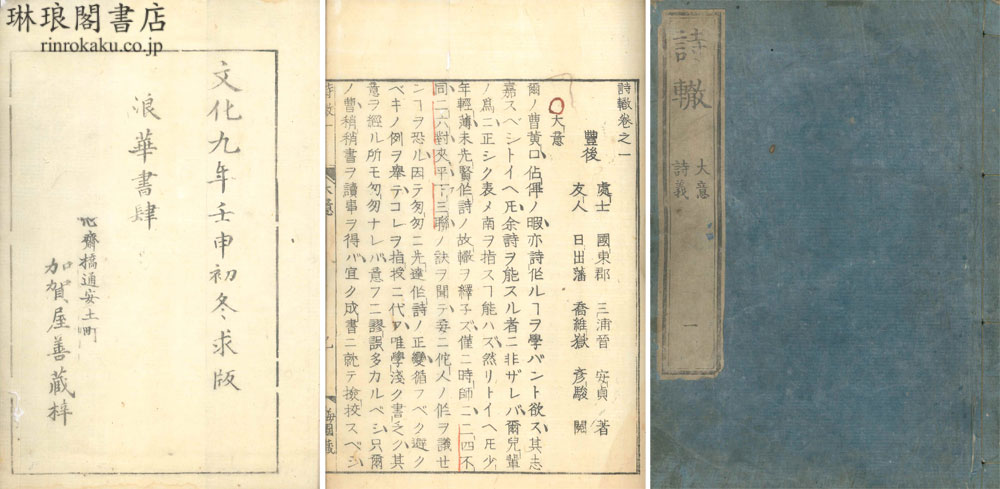 琳琅閣書店
rinrokaku.co.jp
文化九年壬申初冬求版
浪華書肆
心齋橋通安土町
加賀屋善藏梓
詩轍卷之一
豐後
處士 國東郡 三浦晉 安貞 著
友人 日出藩 喬維嶽 彥駿 閱
大意
爾ノ曹黃口佔畢ノ暇亦詩作ルヿヲ學バント欲ス其志
嘉スベシトイヘ𪜈余詩ヲ能スル者ニ非ザレバ爾兒輩
ノ爲ニ正シク表メ南ヲ指スヿ能ハズ然リトイヘ𪜈少
年輕薄未先賢作詩ノ故轍ヲ繹子ズ僅ニ時師ニ二四不
同二六對夾平下三聯ノ訣ヲ聞テ妄ニ佗人ノ作ヲ議セ
ンヿヲ恐ル因テ匆匆ニ先達作詩ノ正變循フベク避ク
ベキノ例ヲ擧テコレヲ指授ニ代フ唯學淺ク書乏ク其
意ヲ經ル所モ匆匆ナレバ意フニ謬誤多カルベシ只爾
ノ曹稍稍書ヲ讀事ヲ得バ宜ク成書ニ就テ撿挍スベシ
詩轍
大意
詩義
一